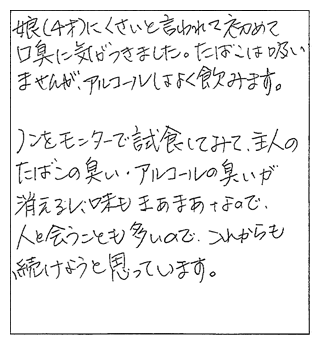 娘(4才)にくさいと言われて初めて
口臭に気がつきました。たばこは吸い
ませんが、アルコールはよく飲みます。
ノンをモニターで試食してみて、主人の
たばこの臭い・アルコールの臭いが
消えるし、味もまあまあなので、
人と会うことも多いので、これからも
続けようと思っています。